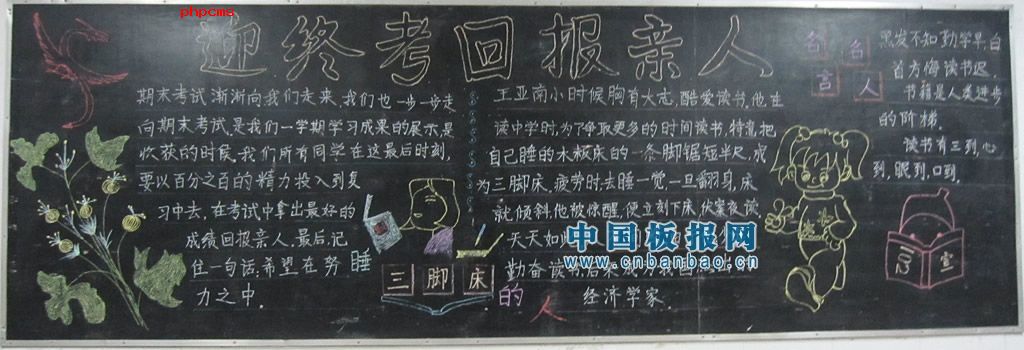 phpcms
迎终考回报亲人
期末考试渐渐向我们走来,我们也一步一步走
向期末考试是我们一学期学习成果的展示是
收获的时候.我们所有同学在这最后时刻,
要以百分之百的精力投入到复
习中去,在考试中拿出最好的
成绩回报亲人.最后,记
住一句话:希望在努
力之中.
王亚南小时候胸有大志,酷爱读书.他在
读中学时,为了争取更多的时间读书,特意把
自己睡的木板床的一条脚锯短半尺,成
为三脚床.疲劳时,去睡一觉,一旦翻身,床
就倾斜,他被惊醒,便立刻下床,伏案夜读,
天天如
勤奋读书,后来成为我
经济学家.
睡
三脚床
的人
名言
名人
黑发不知勤学早,白
首方悔读书迟.
书籍是人类进步
的阶梯.
读书有三到,心
到,眼到,口到.
中国板报网
www.cnbanbao.cn